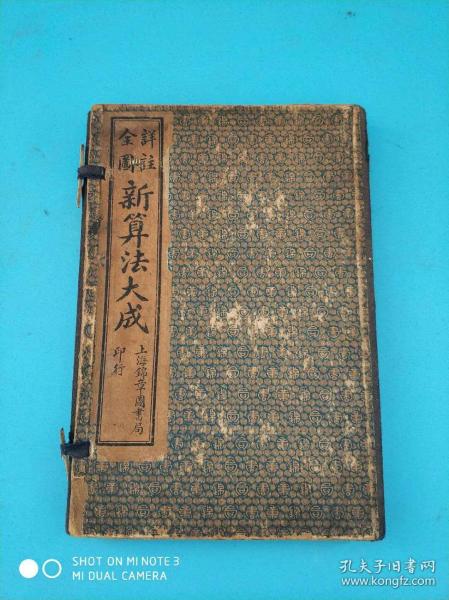 詳註
全圖
新算法大成
上海錦章圖書局
印行
SHOT ON MI NOTE 3
MI DUAL CAMERA
孔夫子旧书网
www.kongfz.com